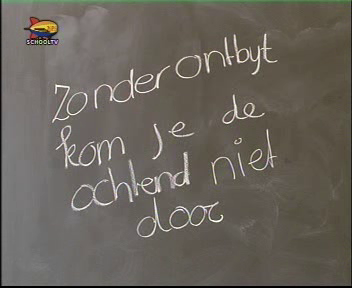 SCHOOLTV
Zonder ontbyt
kom je de
ochtend niet
door